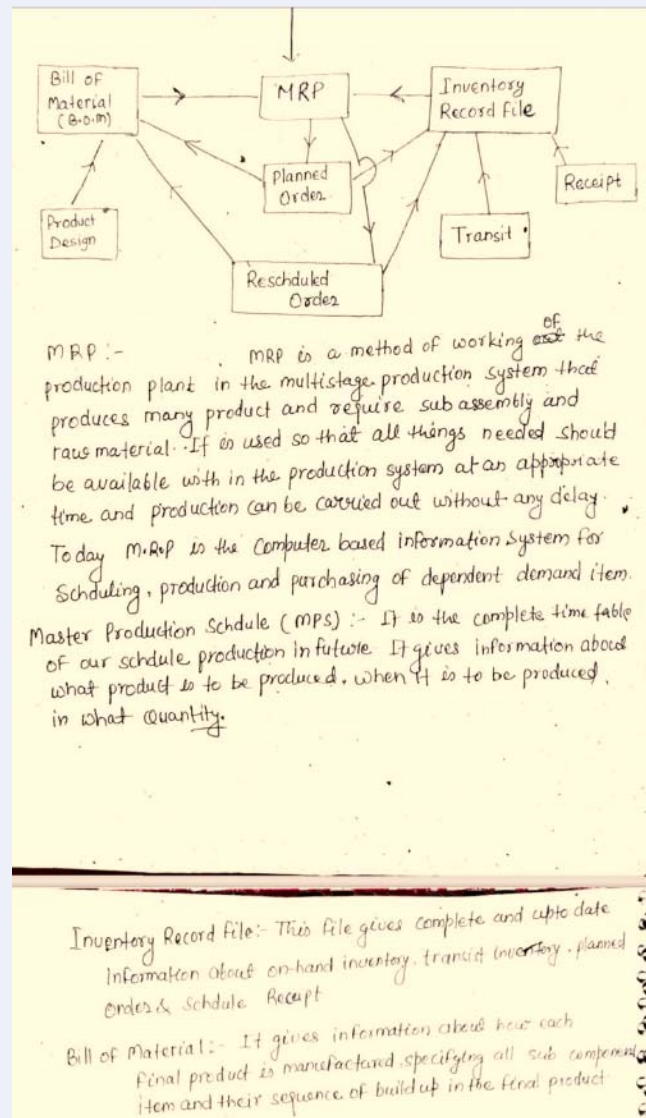 Bill of
Material
(B.O.M)
MRP
Inventory
Record File
Planned
Order
Receipt
Product
Design
Transit
Reschduled
Order
MRP :- MRP is a method of working of the
production plant in the multistage production system that
produces many product and require sub assembly and
raw material. It is used so that all things needed should
be available with in the production system at an appropriate
time and production can be carried out without any delay.
Today M.R.P is the Computer based information System for
Schduling, production and purchasing of dependent demand item.
Master Production Schdule (MPS) :- It is the complete time table
of our schdule production in future It gives information about
what product is to be produced, when it is to be produced,
in what Quantity.
Inventory Record File:- This file gives complete and upto date
Information about on-hand inventory, transist inventory, planned
Order & Schdule Receipt
Bill of Material:- It gives information about how each
final product is manufactared, specifying all sub component
item and their sequence of buildup in the final product